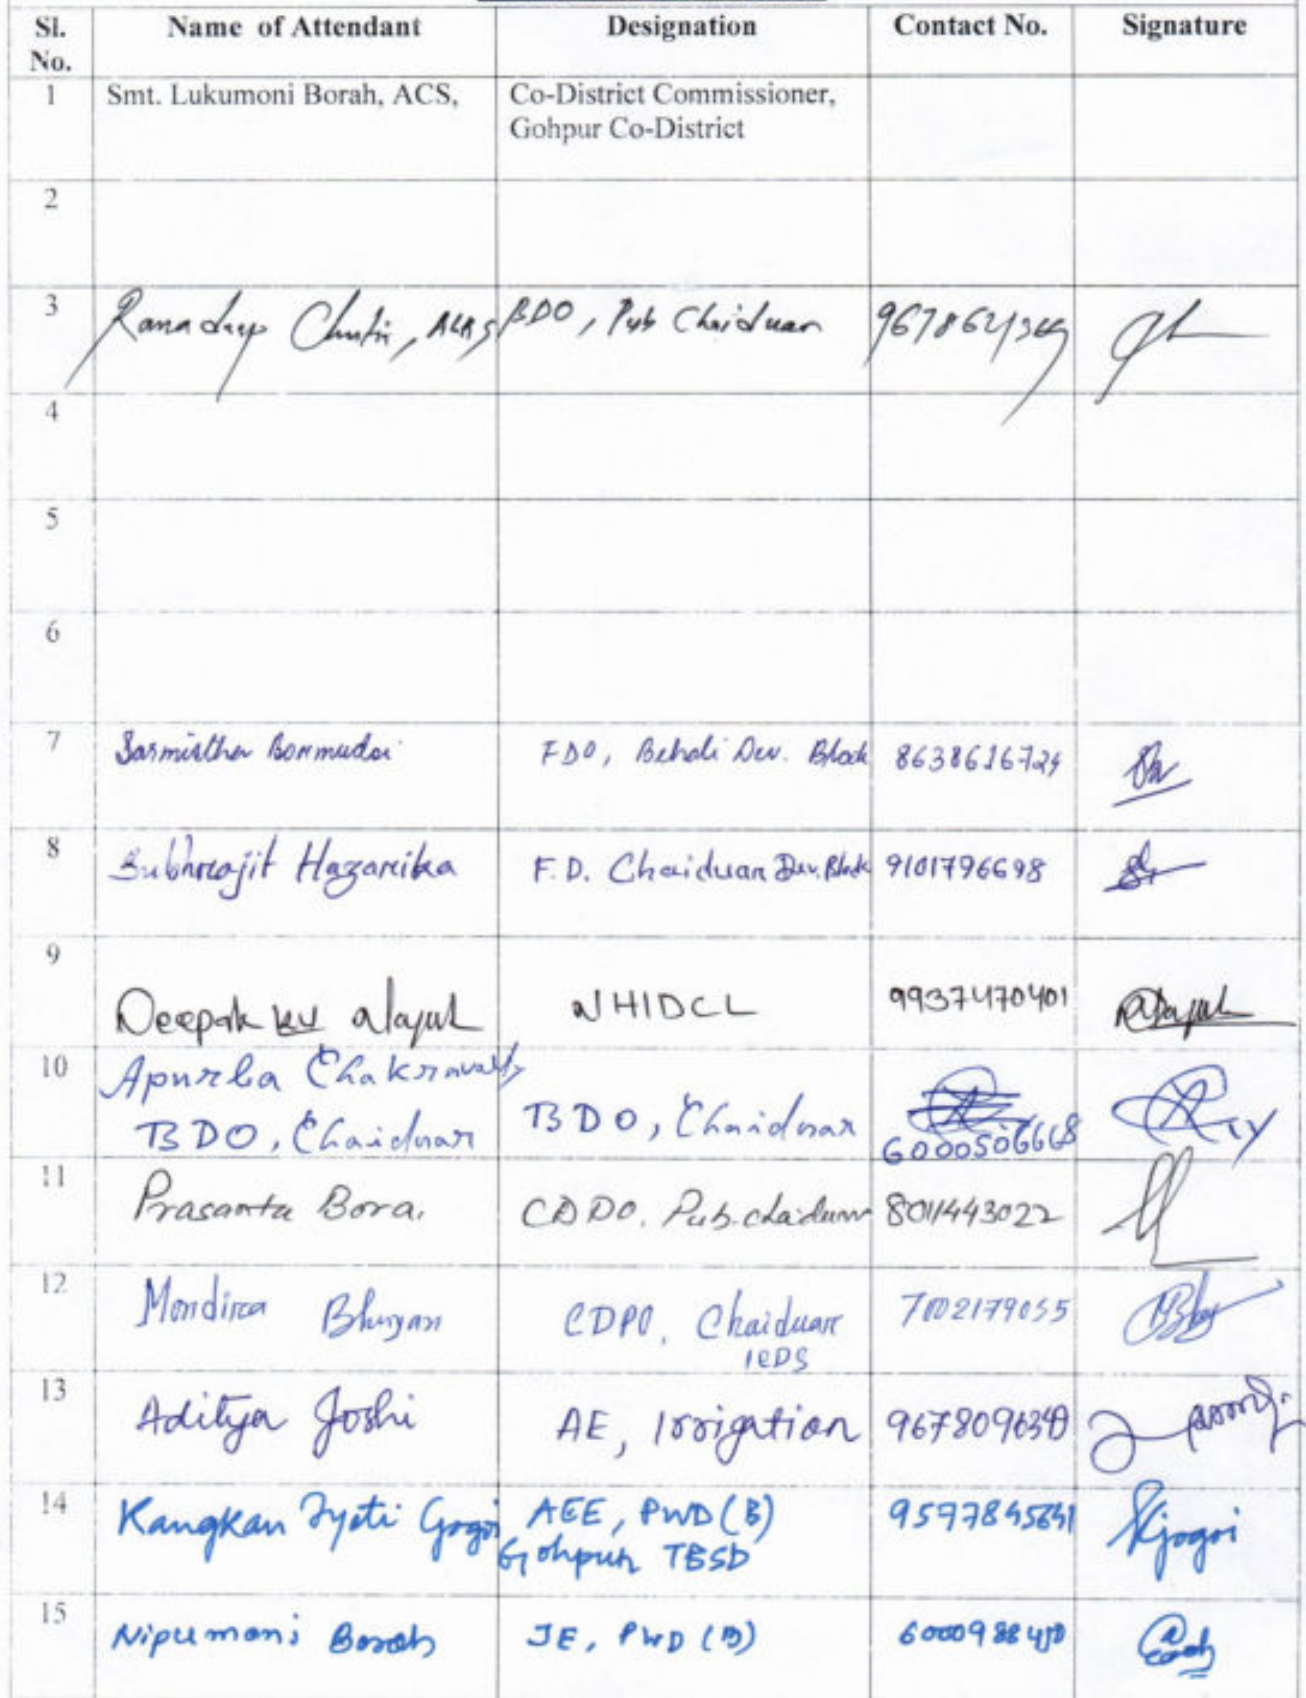 Sl. No. Name of Attendant Designation Contact No. Signature
1 Smt. Lukumoni Borah, ACS, Co-District Commissioner,
Gohpur Co-District
2
3 Ranadeep Chutia, BDO, Pub Chaiduar
4
5
6
7 Sarmistha Bormudoi FDO, Behali Dev. Block 8638616724
8 Subhrajit Hazarika F.D. Chaiduar Dev. Block 9101796698
9 Deepak NHIDCL 99374170401
10 Apurba Chakravarty
BDO, Chaiduar BDO, Chaiduar
11 Prasanta Bora. CDPO. Pub. chaiduar 8011443022
12 Mondira Bhuyan CDPO, Chaiduar 7002179055
ICDS
13 Aditya Joshi AE, Irrigation
14 Kangkan Jyoti Gogoi AEE, PWD (B) 9577845641
Gohpur TBSD
15 Nipumoni Borah JE, PWD (B)